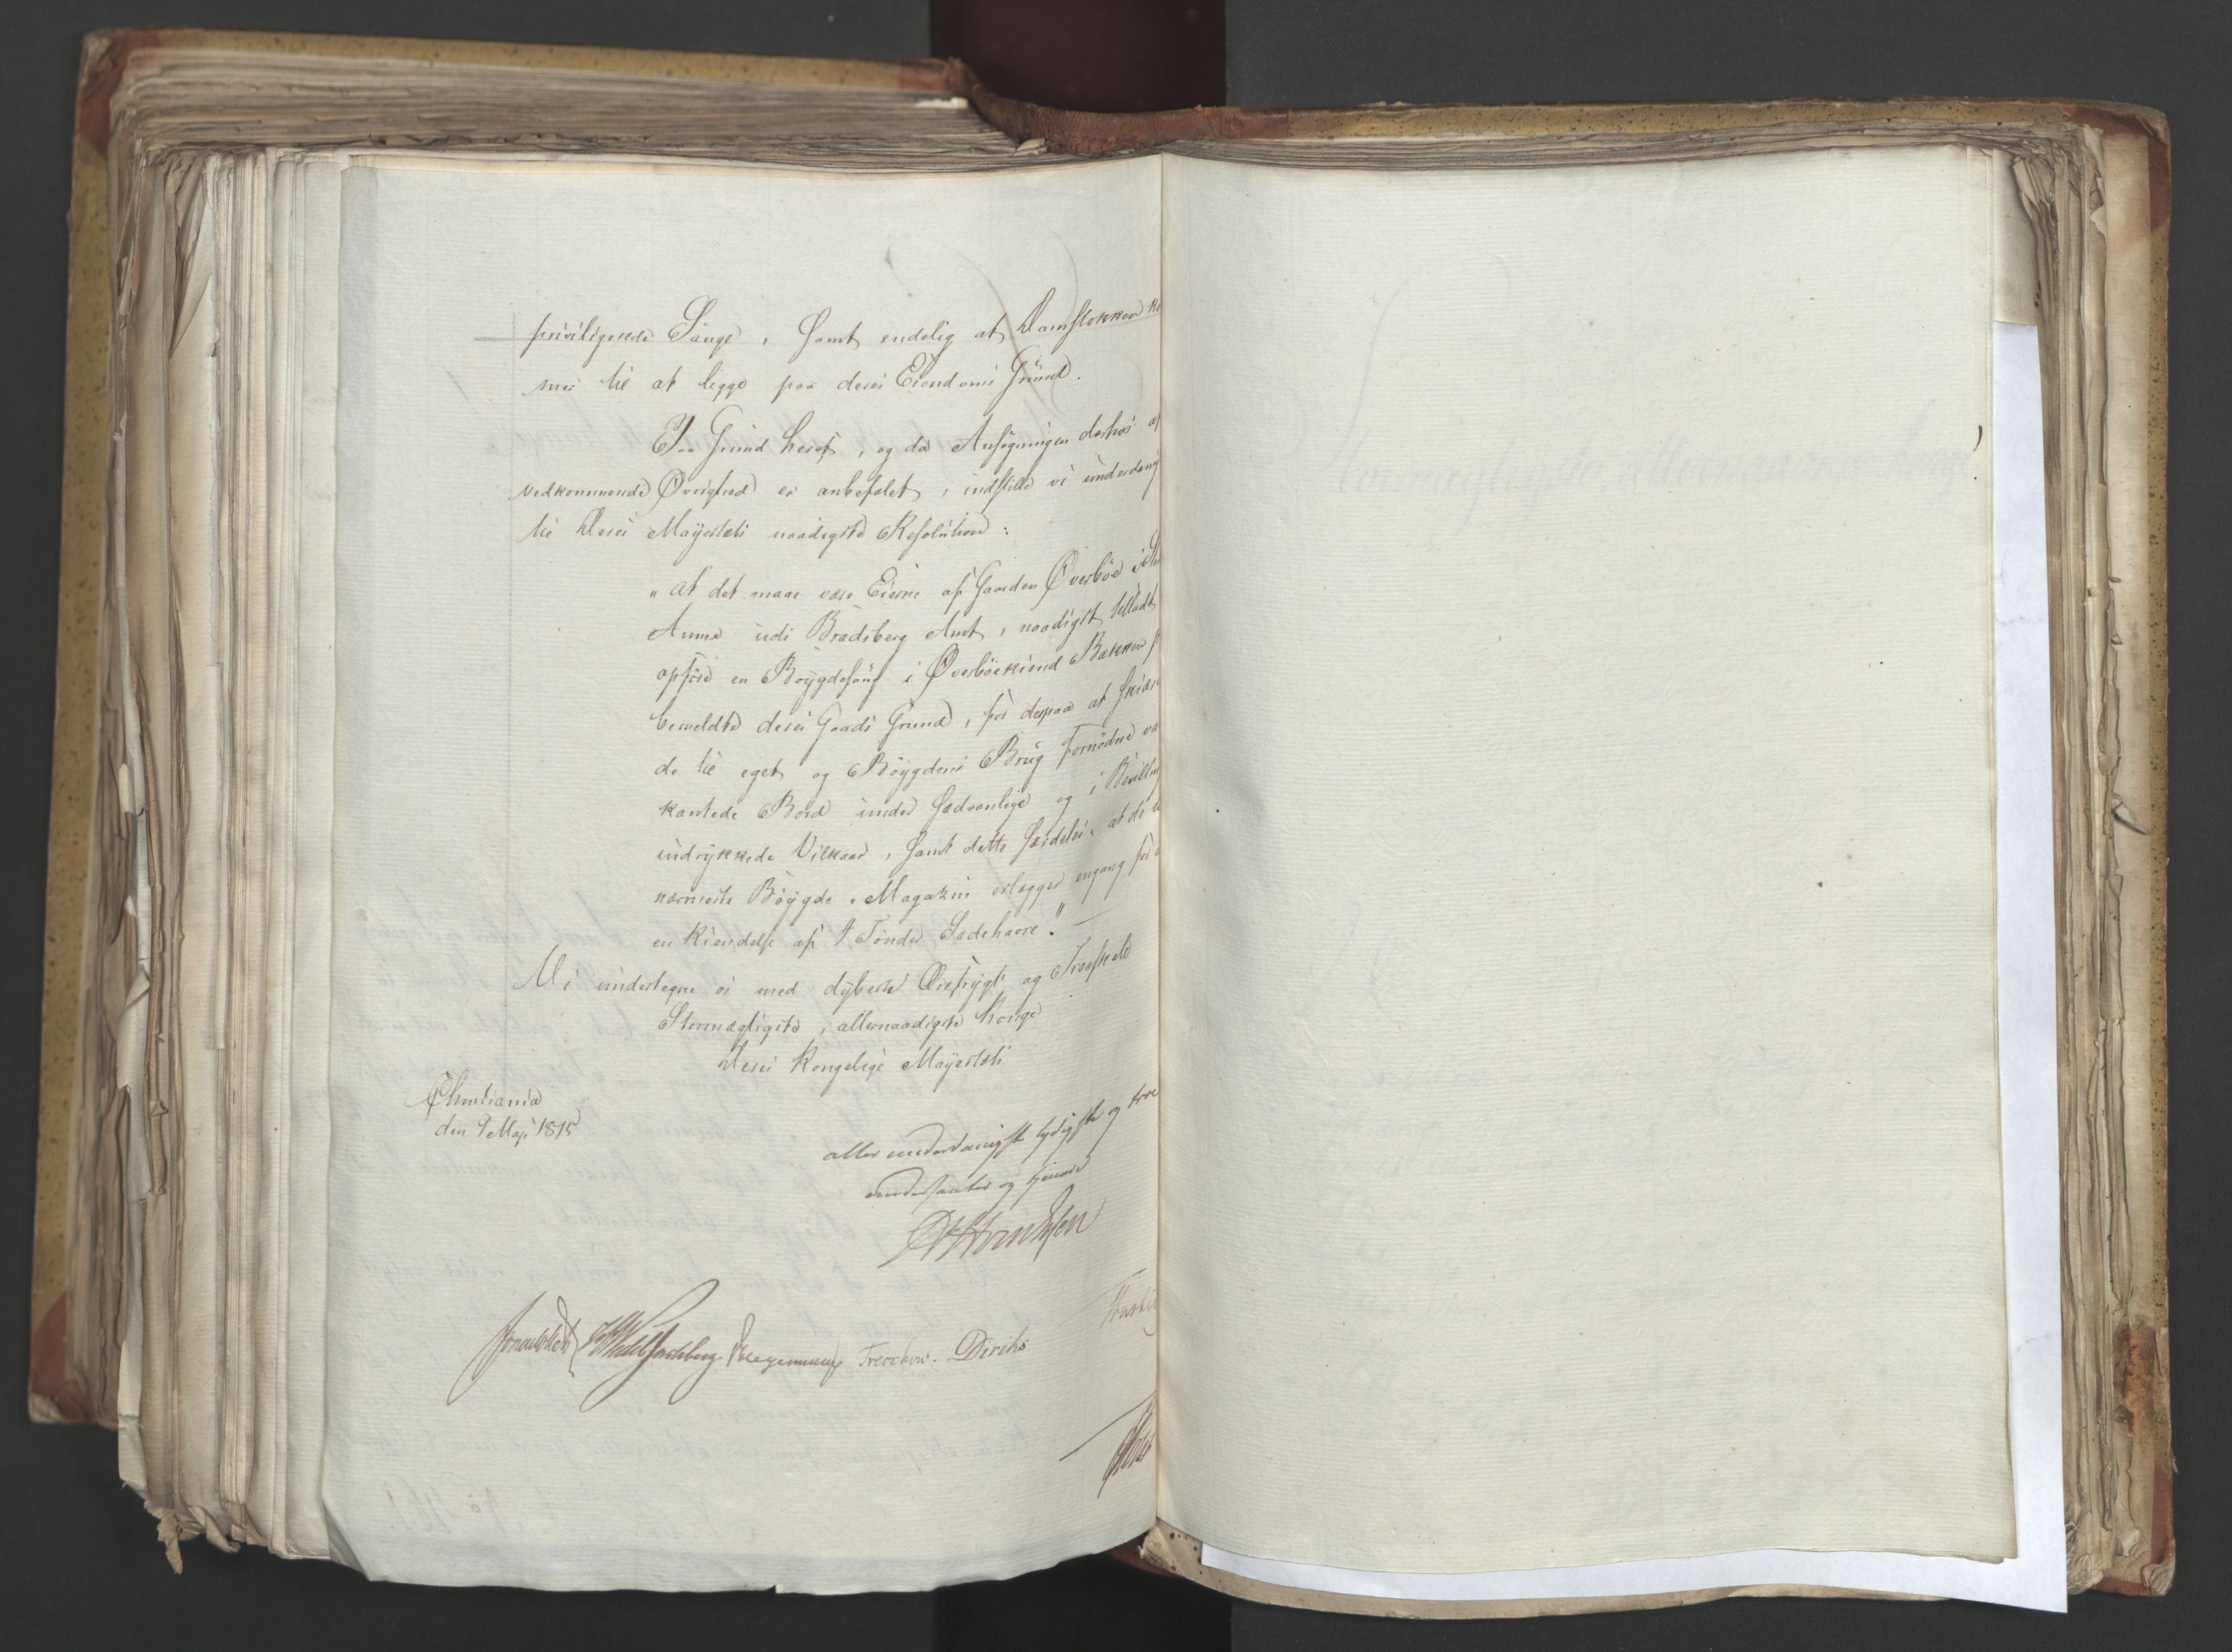 privilegerede Sauge, samt endelig at Damstokken ko
mer til at ligge paa deres Eiendoms Grund.
Paa Grund heraf, og da Ansøgningen derhos af
vedkommende Øvrighed er anbefalet, indstille vi underdanig
til Deres Mayestæts naadigste Resolution:
"at det maae være Eierne af Gaarden Øverbøe i
Amme udi Bradsberg Amt, naadigst tilladt
opføre en Bøygdesaug i Øverbøekiend Bækken
bemeldte deres Gaards Grund, for derpaa at skiær
de til eget og Bøygdens Brug fornødne va
kantede Bord under sædvanlige og i Bevilling
indrykkede Vilkaar, samt dette særdeles, at de
nærmeste Bøygde-Magazin erlægger engang for
en Kiendelse af 4 Tønder Sædehavre."
Vi undertegne os med dybeste Ærefrygt og Troeskab
Stormægtigste, allernaadigste Konge
Deres Kongelige Mayestæts
Christiania
den 9 Maji 1815
allerunderdanigste lydigste og troe
undersaatter og tjenere
Treschow. Diriks